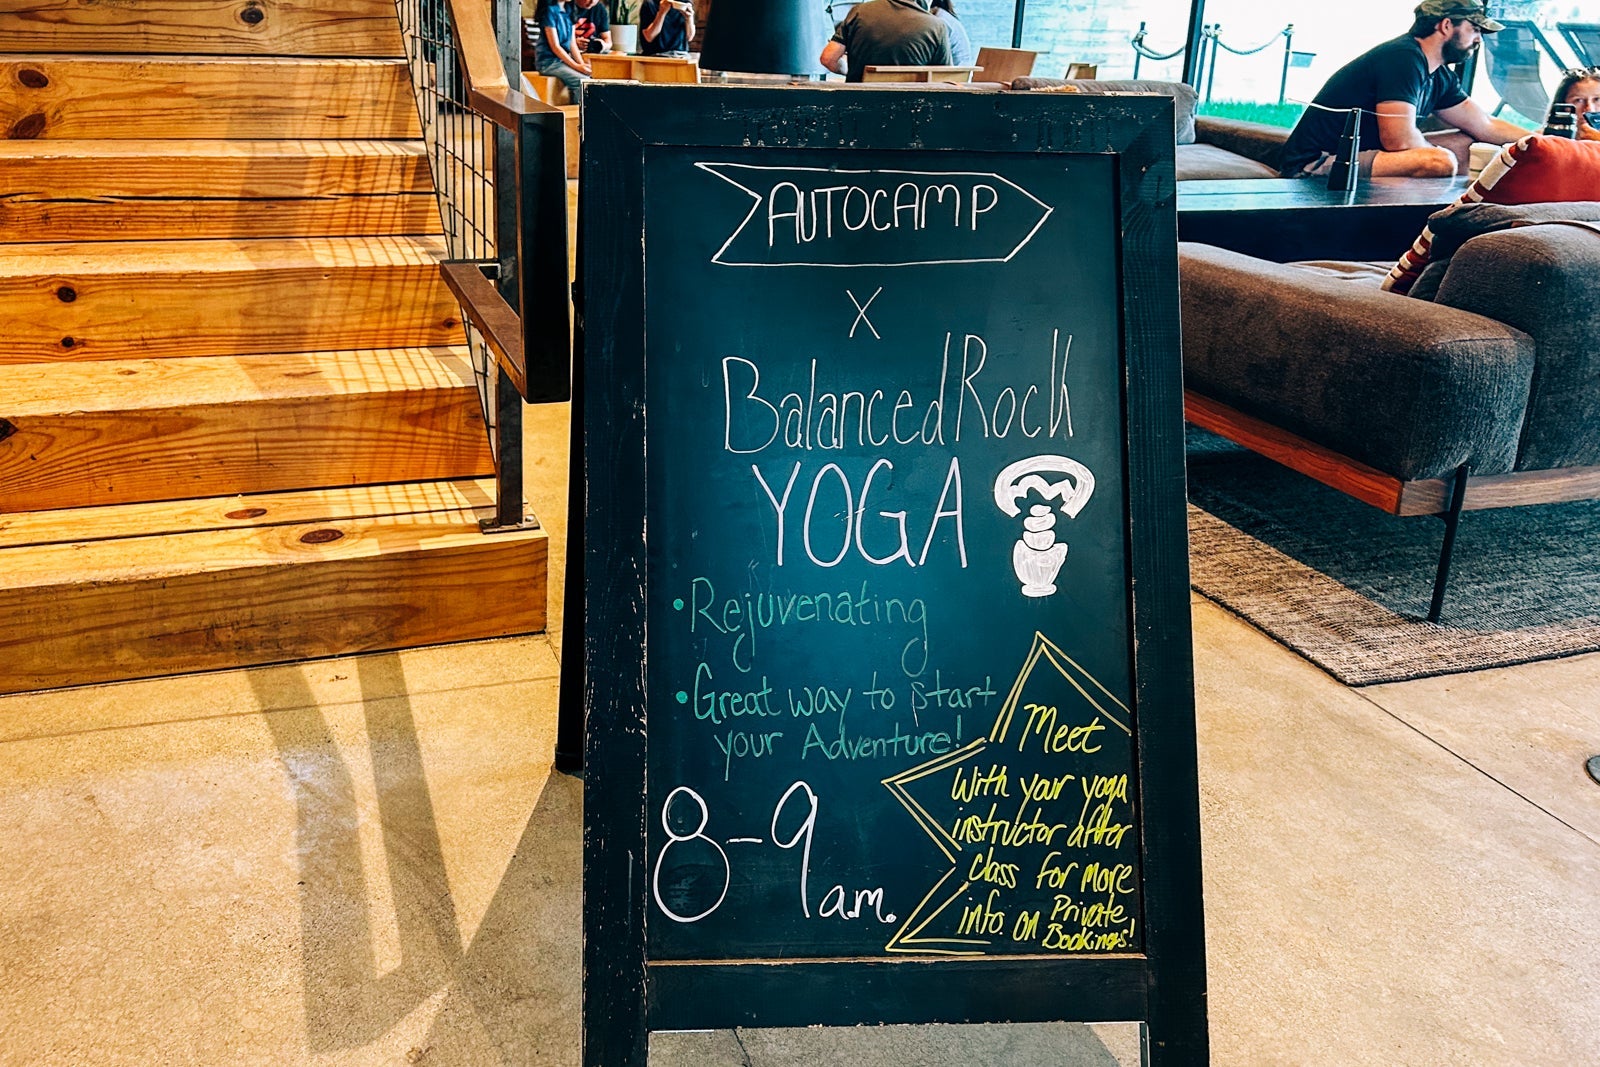 AUTOCAMP
X
Balanced Rock
YOGA
• Rejuvenating
• Great way to start
your Adventure!
8-9 a.m.
Meet
With your yoga
instructor after
class for more
info. on Private
Bookings!